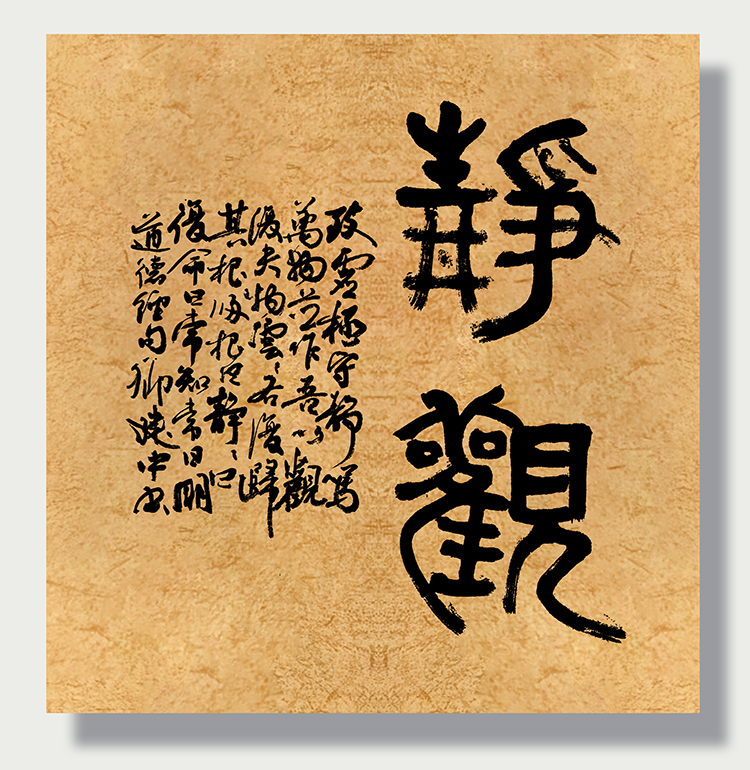 靜觀
致虛極守靜篤
萬物並作吾以觀
復夫物雲〻各復歸
其根歸根曰靜〻曰
復命曰常知常曰明
道德經句